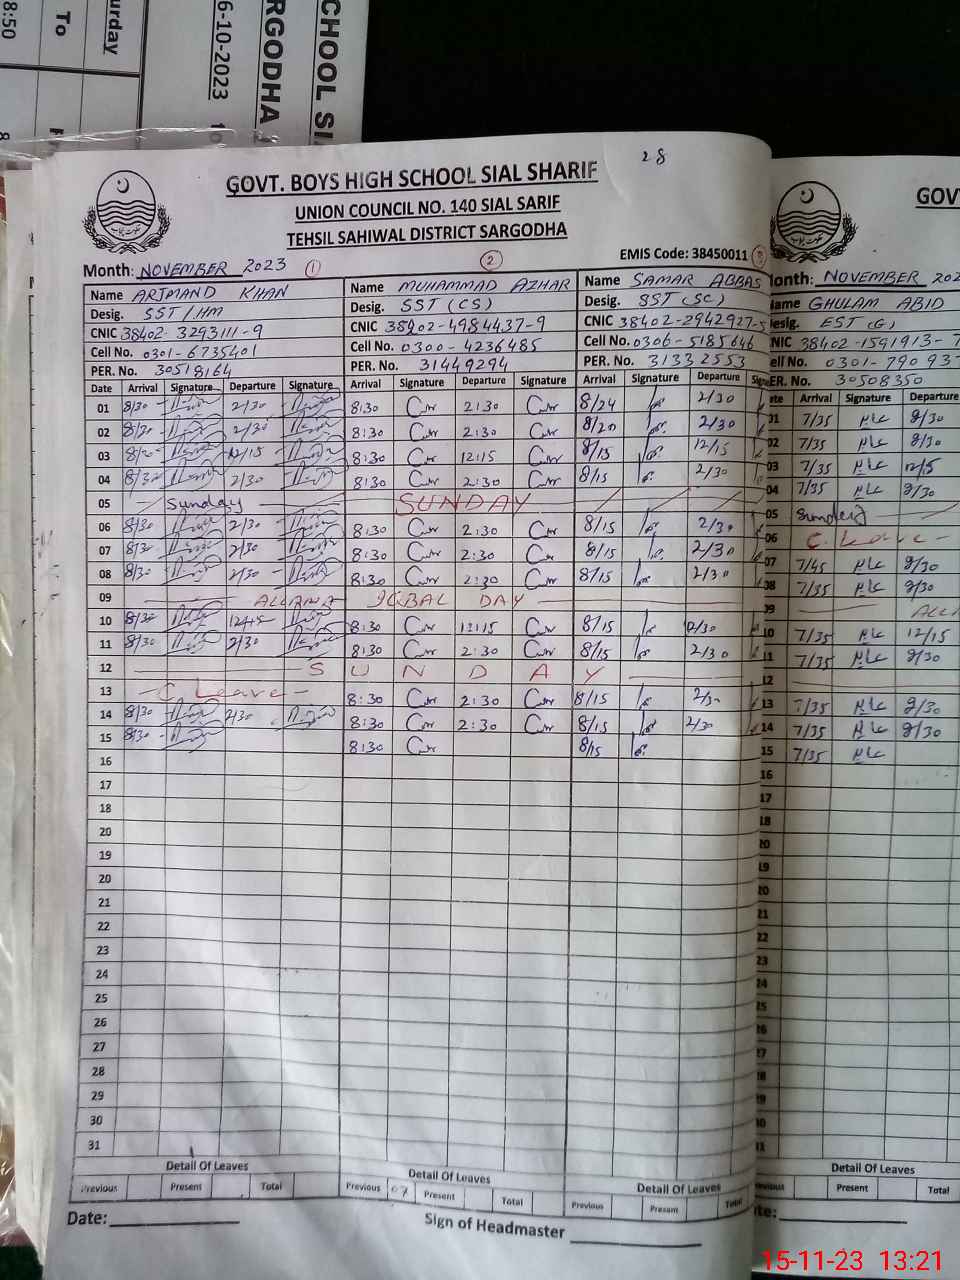 CHOOL SI
RGODHA
6-10-2023 to
urday
To
8:50
28
GOVT. BOYS HIGH SCHOOL SIAL SHARIF
UNION COUNCIL NO. 140 SIAL SARIF
TEHSIL SAHIWAL DISTRICT SARGODHA
EMIS Code: 38450011
Month: NOVEMBER 2023 1 2 3
Name ARJMAND KHAN Name MUHAMMAD AZHAR Name SAMAR ABBAS
Desig. SST/HM Desig. SST (CS) Desig. SST (SC)
CNIC 38402-3293111-9 CNIC 38402-4984437-9 CNIC 38402-2942927-5
Cell No. 0301-6735401 Cell No. 0300-4236485 Cell No. 0306-5185646
PER. No. 30518164 PER. No. 31449294 PER. No. 31332553
Date Arrival Signature Departure Signature Arrival Signature Departure Signature Arrival Signature Departure Sign
01 8/30 2/30 8:30 2:30 8/24 2/30
02 8/30 2/30 8:30 2:30 8/20 2/30
03 12/15 8:30 12:15 8/15 12/15
04 8/30 2/30 8:30 2:30 8/15 2/30
05 Sunday SUNDAY
06 8/30 2/30 8:30 2:30 8/15 2/30
07 8/30 2/30 8:30 2:30 8/15 2/30
08 8/30 2/30 8:30 2:30 8/15 2/30
09 ALLAMA IQBAL DAY
10 8/30 8:30 12:15 8/15
11 8/30 2/30 8:30 2:30 8/15 2/30
12 SUNDAY
13 C. Leave 8:30 2:30 8/15 2/30
14 8/30 2/30 8:30 2:30 8/15 2/30
15 8/30 8:30 8/15
16
17
18
20
19
20
21
22
23
24
25
26
27
28
29
30
31
Detail Of Leaves Detail Of Leaves Detail Of Leaves
Previous Present Total Previous 07 Present Total Previous Present Total
Date: Sign of Headmaster
GOV
Month: NOVEMBER 202
Name GHULAM ABID
Desig. EST (G)
CNIC 38402-1591913-7
Cell No. 0301-790 937
PER. No. 30508350
Date Arrival Signature Departure
01 7/35 2/30
02 7/35 2/30
03 7/35 12/15
04 7/35 2/30
05 Sunday
06 C. Leave
07 7/45 2/30
08 7/35 2/30
09 ALL
10 7/35 12/15
11 7/35 2/30
12
13 7/35 2/30
14 7/35 2/30
15 7/35
16
17
18
20
19
20
21
22
23
24
25
26
27
28
29
30
31
Detail Of Leaves
Previous Present Total
Date:
15-11-23 13:21